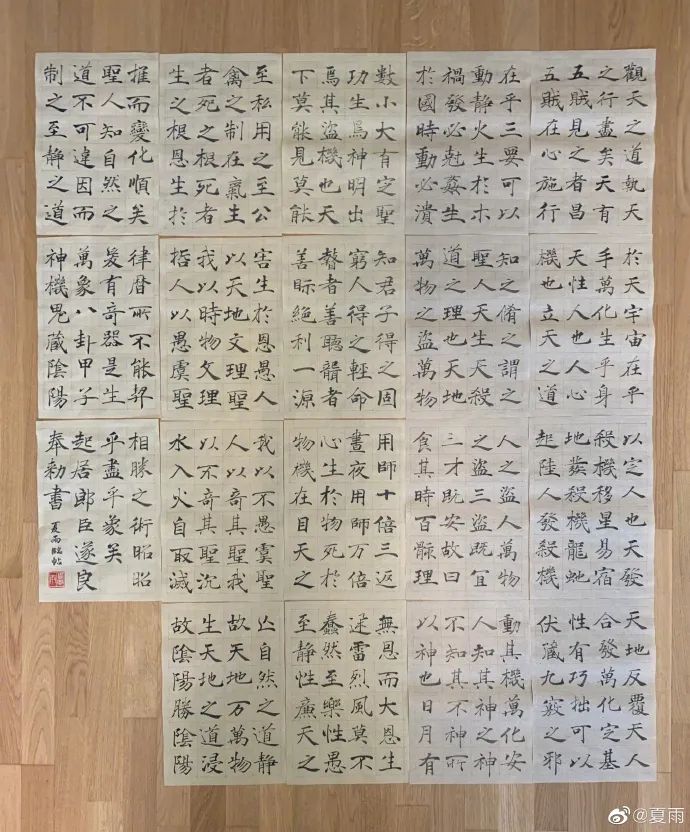 觀天之道執天
之行盡矣天有
五賊見之者昌
五賊在心施行
於天宇宙在乎
手萬化生乎身
天性人也人心
機也立天之道
以定人也天發
殺機移星易宿
地發殺機龍虵
起陸人發殺機
天地反覆天人
合發萬化定基
性有巧拙可以
伏藏九竅之邪
在乎三要可以
動靜火生於木
禍發必尅姦生
於國時動必潰
知之脩之謂之
聖人天生天殺
道之理也天地
萬物之盜萬物
人之盜人萬物
之盜三盜既宜
三才既安故曰
食其時百骸理
動其機萬化安
人知其神之神
不知其不神所
以神也日月有
數小大有定聖
功生焉神明出
焉其盜機也天
下莫能見莫能
知君子得之固
窮人得之輕命
瞽者善聽聾者
善眎絕利一源
用師十倍三返
晝夜用師万倍
心生於物死於
物機在目天之
無恩而大恩生
迅雷烈風莫不
蠢然至樂性愚
至靜性廉天之
至私用之至公
禽之制在氣生
者死之根死者
生之根恩生於
害生於恩愚人
以天地文理聖
我以時物文理
哲人以愚虞聖
我以不愚虞聖
人以奇其聖我
以不奇其聖沉
水入火自取滅
亡自然之道靜
故天地万萬物
生天地之道浸
故陰陽勝陰陽
推而變化順矣
聖人知自然之
道不可違因而
制之至靜之道
律曆所不能契
爰有奇器是生
萬象八卦甲子
神機鬼藏陰陽
相勝之術昭昭
乎盡乎象矣
起居郎臣遂良
奉勑書 夏雨臨帖
@夏雨